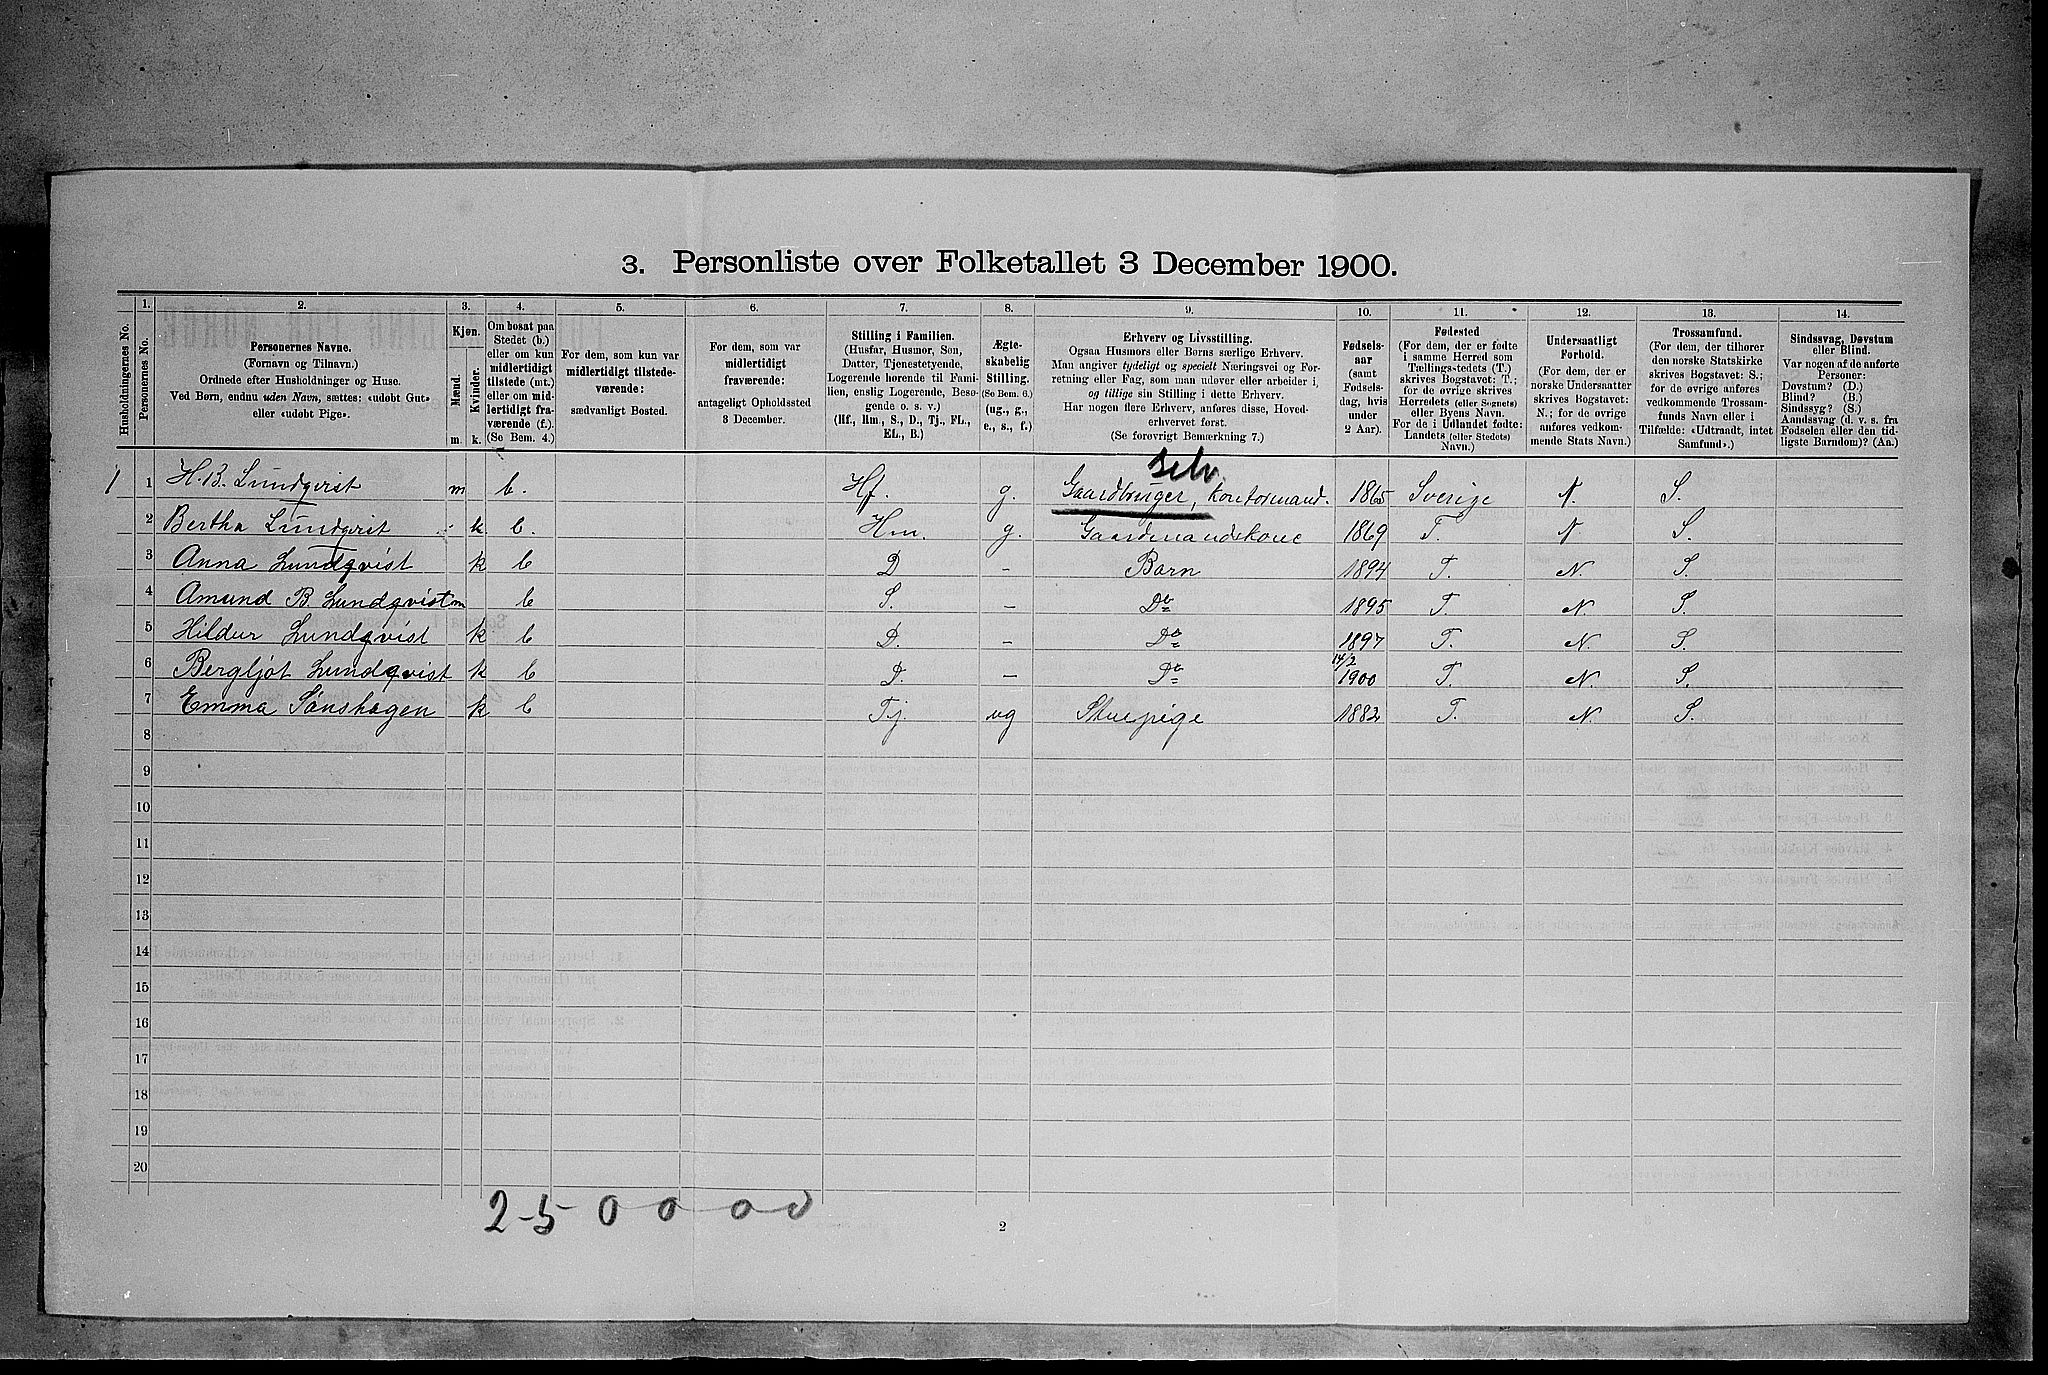 3. Personliste over Folketallet 3 December 1900.
1. 2. 3. 4. 5. 6. 7. 8. 9. 10. 11. 12. 13. 14.
Husholdningernes No.
Personernes No.
Personernes Navne.
(Fornavn og Tilnavn.)
Ordnede efter Husholdninger og Huse.
Ved Børn, endnu uden Navn, sættes: «udøbt Gut»
eller «udøbt Pige».
Kjøn.
Mænd.
Kvinder.
m. k.
Om bosat paa
Stedet (b.)
eller om kun
midlertidigt
tilstede (mt.)
eller om mid-
lertidigt fra-
værende (f.).
(Se Bem. 4.)
For dem, som kun var
midlertidigt tilstede-
værende:
sædvanligt Bosted.
For dem, som var
midlertidigt
fraværende:
antageligt Opholdssted
3 December.
Stilling i Familien.
(Husfar, Husmor, Søn,
Datter, Tjenestetyende,
Logerende hørende til Fami-
lien, enslig Logerende, Besø-
gende o. s. v.)
(Hf., Hm., S., D., Tj., FL.,
EL., B.)
Ægte-
skabelig
Stilling.
(Se Bem. 6.)
(ug., g.,
e., s., f.)
Erhverv og Livsstilling.
Ogsaa Husmors eller Børns særlige Erhverv.
Man angiver tydeligt og specielt Næringsvei og For-
retning eller Fag, som man udover eller arbeider i,
og tillige sin Stilling i dette Erhverv.
Har nogen flere Erhverv, anføres disse, Hoved-
erhvervet først.
(Se forøvrigt Bemærkning 7.)
Fødsels-
aar
(samt
Fødsels-
dag, hvis
under
2 Aar).
Fødested
(For dem, der er fødte
i samme Herred som
Tællings-stedets (T.)
skrives Bogstavet: T.;
for de øvrige skrives
Herredets (eller Sognets)
eller Byens Navn.
For de i Udlandet fødte:
Landets (eller Stedets)
Navn.)
Undersaatligt
Forhold.
(For dem, der er
norske Undersaatter
skrives Bogstavet:
N.; for de øvrige
anføres vedkom-
mende Stats Navn.)
Trossamfund.
(For dem, der tilhører
den norske Statskirke
skrives Bogstavet: S.;
for de øvrige anføres
vedkommende Trossam-
funds Navn eller i
Tilfælde: «Udtraadt, intet
Samfund».)
Sindssvag, Døvstum
eller Blind.
Var nogen af de anførte
Personer:
Døvstum? (D.)
Blind? (B.)
Sindssyg? (S.)
Aandssvag (d. v. s. fra
Fødselen eller den tid-
ligste Barndom)? (Aa.)
Selv.
1 1 H. B. Lundqvist m b. Hf. g. Gaardbruger, Kontormand. 1865 Sverige N. S.
2 Bertha Lundqvist k b. Hm. g. Gaardmandskone 1869 T. N S.
3 Anna Lundqvist k b D – Barn 1894 T. N. S.
4 Amund B. Lundqvist m b S. – Do 1895 T. N S.
5 Hildur Lundqvist k b D. – Do 1897 T. N. S.
6 Bergljot Lundqvist k b D. – Do 14/2 1900 T. N. S.
7 Emma Sønshagen k b Tj. ug Stuepige 1882 T. N. S.
8
9
10
11
12
13
14
15
16
17
18
19
20
2-5 0 0 0 0
2